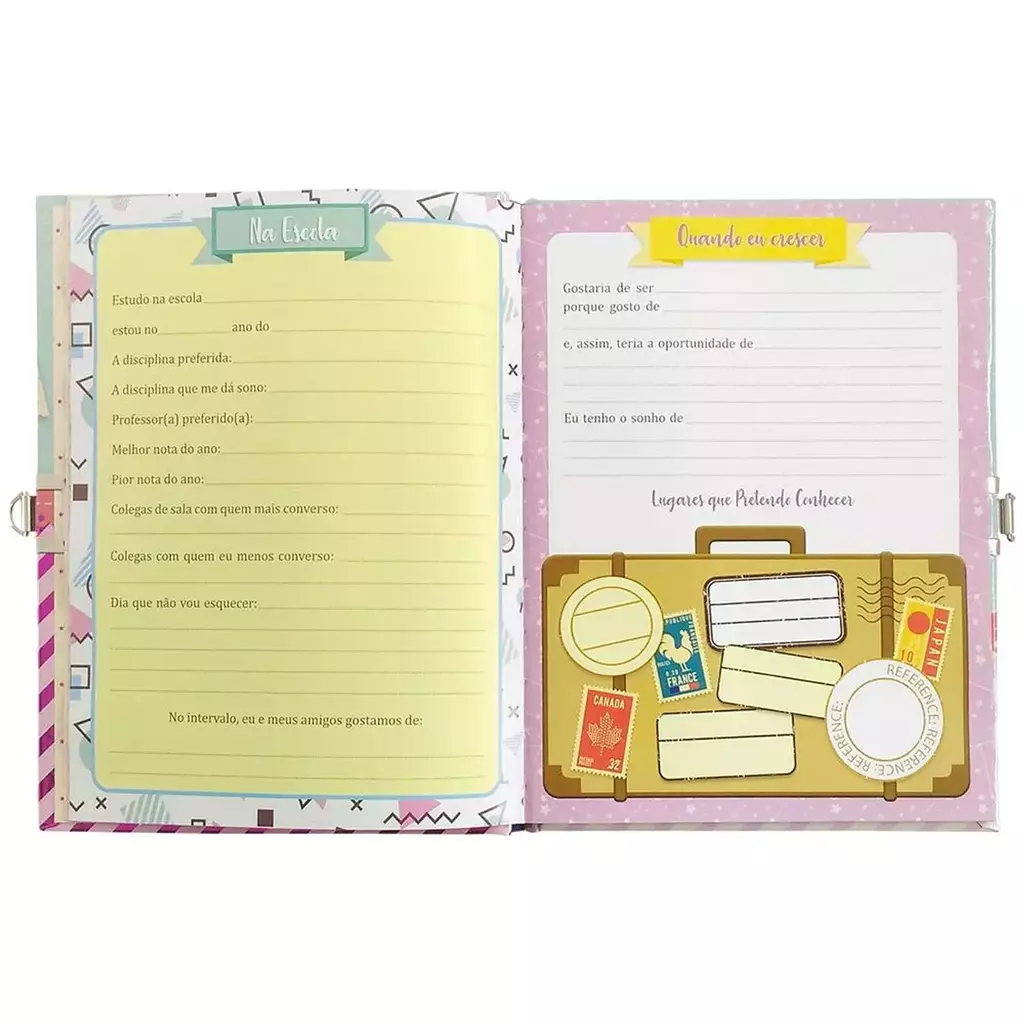 Na Escola
Estudo na escola
estou no ano do
A disciplina preferida:
A disciplina que me dá sono:
Professor(a) preferido(a):
Melhor nota do ano:
Pior nota do ano:
Colegas de sala com quem mais converso:
Colegas com quem eu menos converso:
Dia que não vou esquecer:
No intervalo, eu e meus amigos gostamos de:
Quando eu crescer
Gostaria de ser
porque gosto de
e, assim, teria a oportunidade de
Eu tenho o sonho de
Lugares que Pretendo Conhecer
FRANCE
JAPAN
10
CANADA
32
REFERENCE: REFERENCE: REFERENCE: